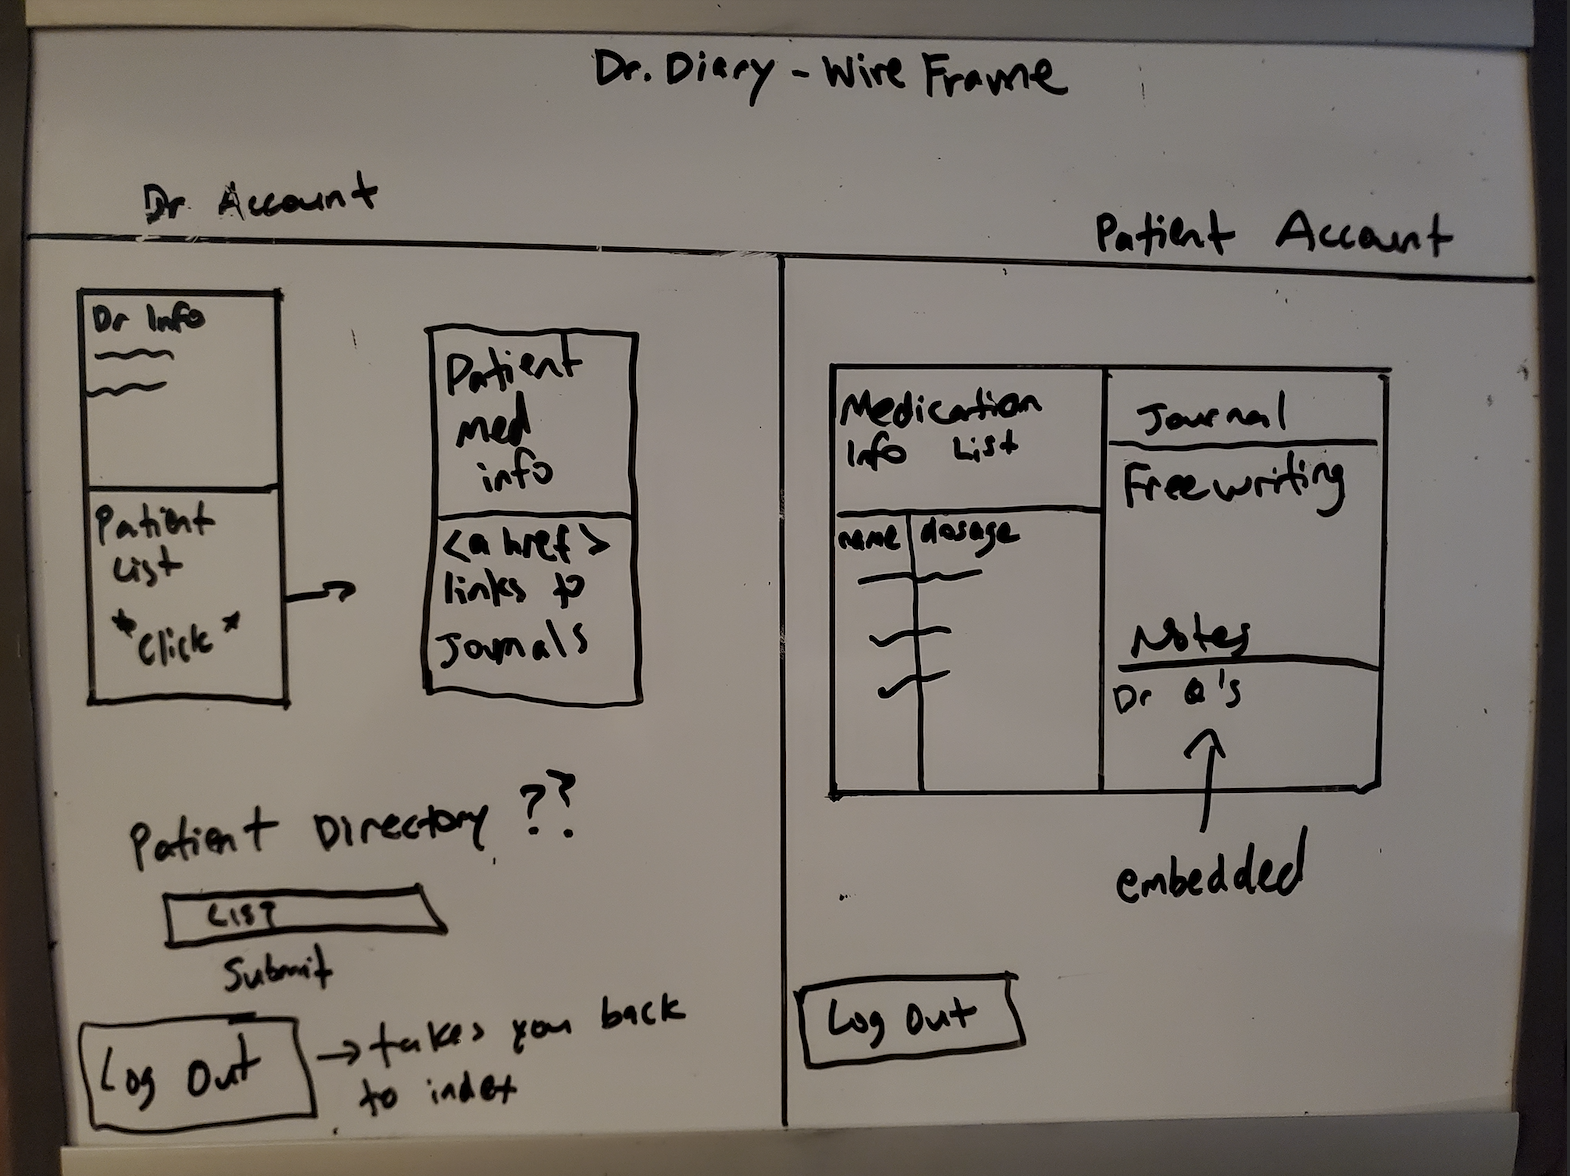 Dr. Diary - Wire Frame
Dr Account
Dr Info
Patient
List
*Click*
Patient
med
info
<a href>
links to
Journals
Patient Directory ??
LIST
Submit
Log Out
→ takes you back
to index
Patient Account
Medication
Info List
name dosage
Journal
Freewriting
Notes
Dr Q's
embedded
Log Out